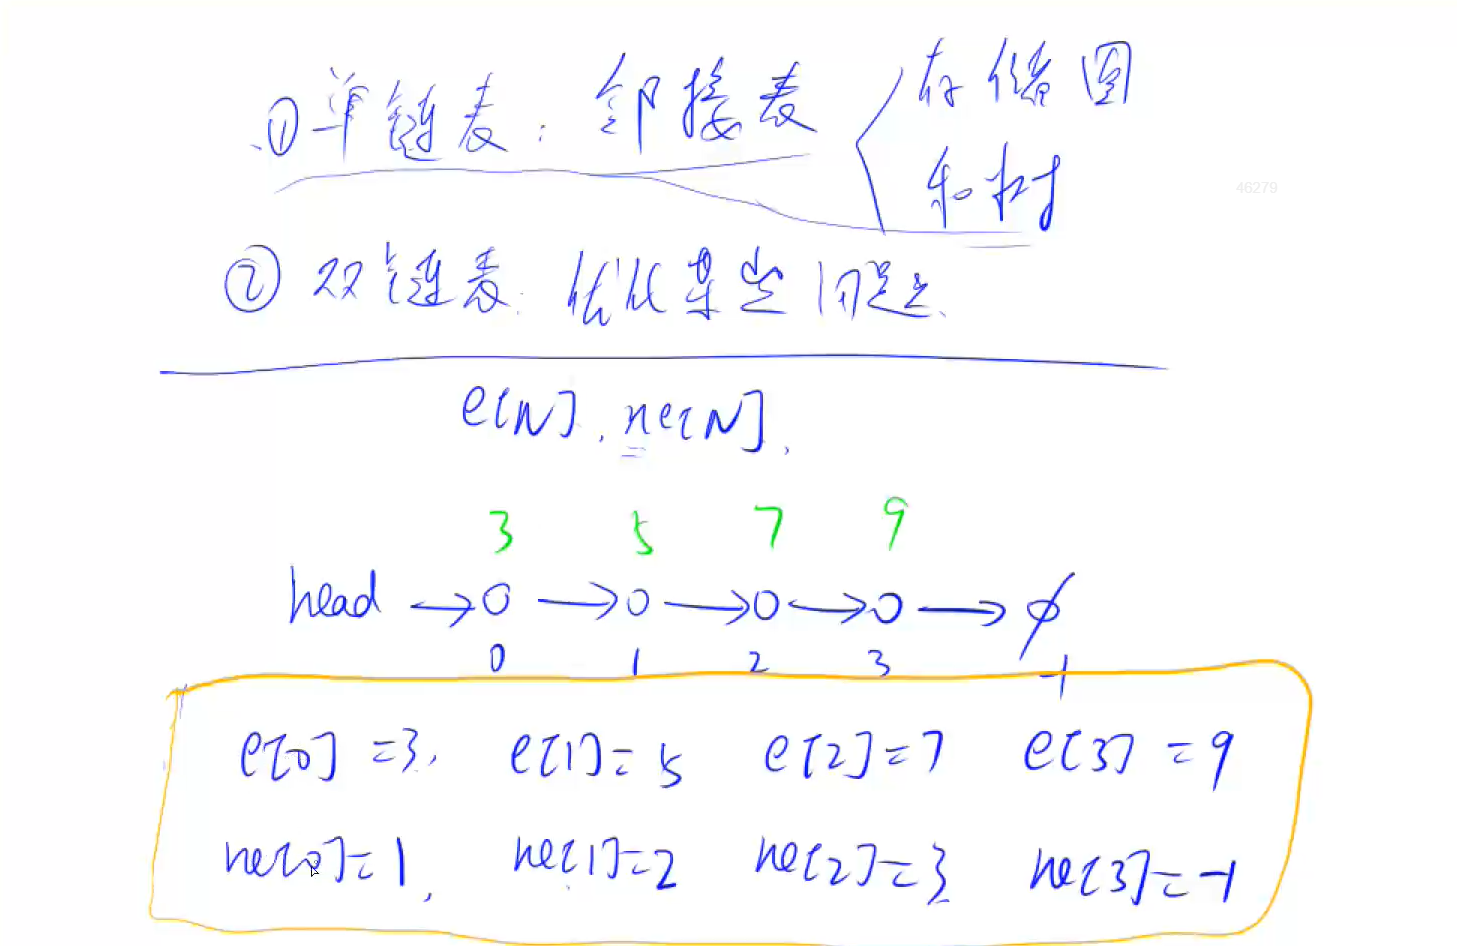 ①单链表：邻接表
存储图
和树
46279
②双链表：优化某些问题.
e[N], ne[N],
3 5 7 9
head → O → O → O → O → ∅
0 1 2 3 -1
e[0]=3, e[1]=5 e[2]=7 e[3]=9
ne[0]=1, ne[1]=2 ne[2]=3 ne[3]=-1